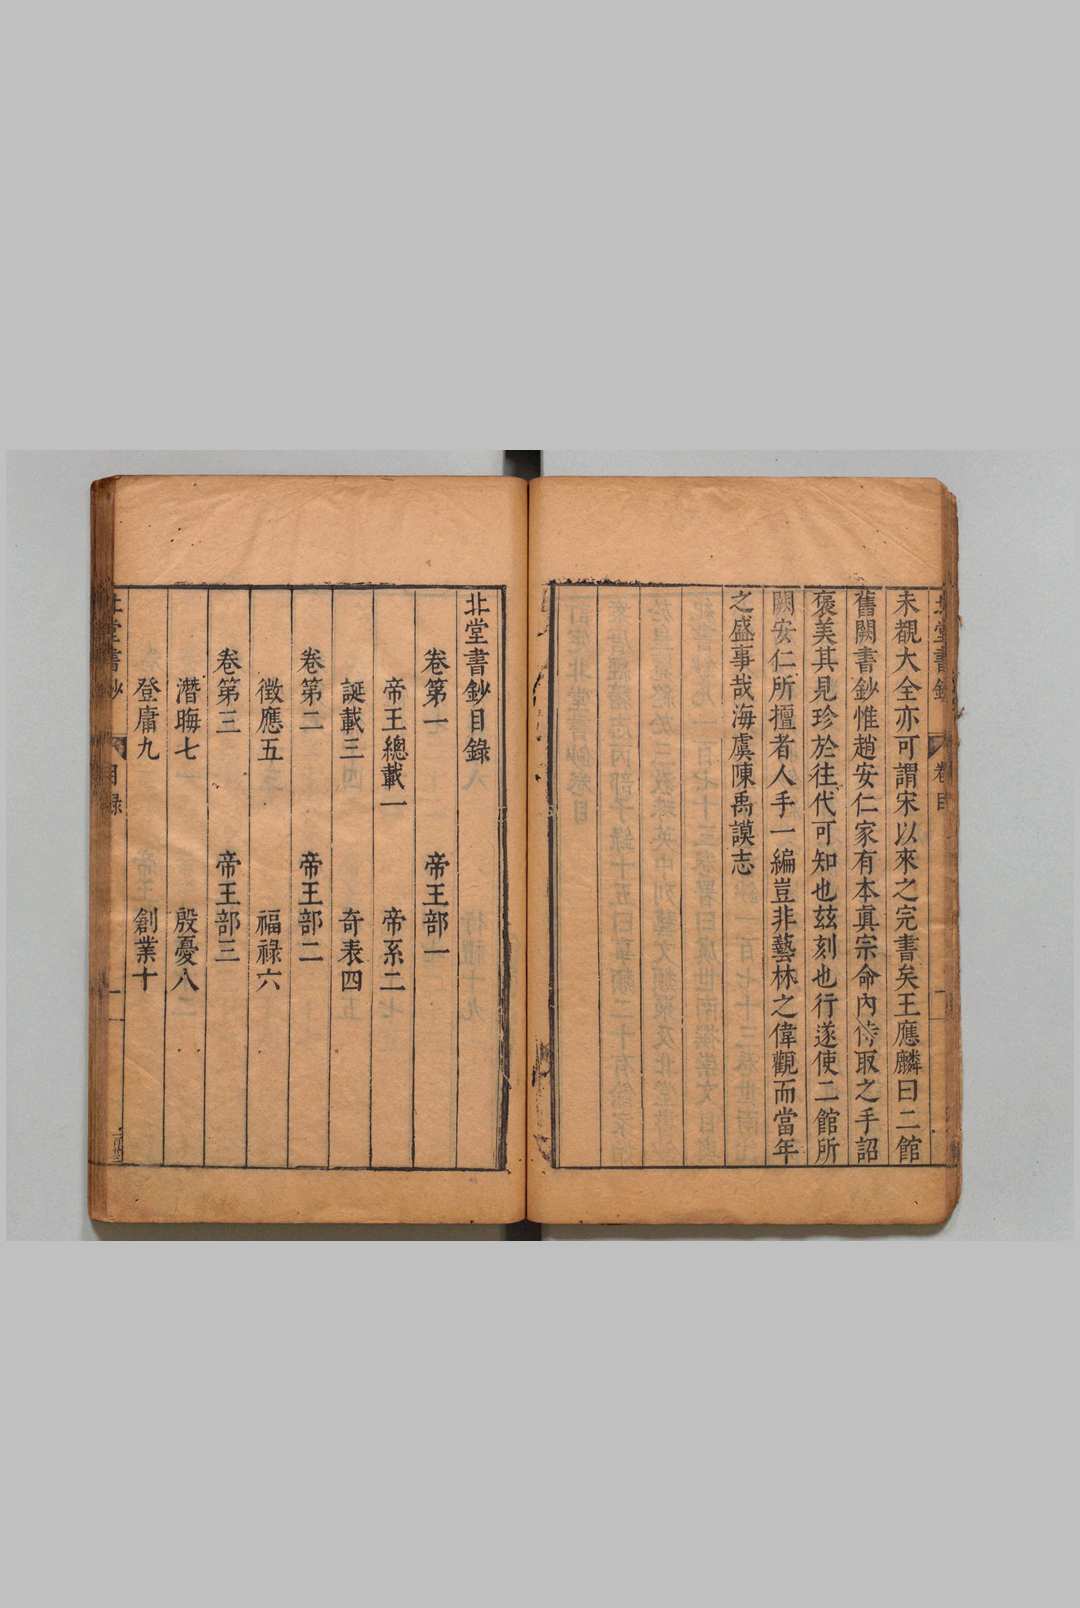 北堂書鈔 卷目
未覩大全亦可謂宋以來之完書矣王應麟曰二館
舊闕書鈔惟趙安仁家有本真宗命內侍取之手詔
褒美其見珍於往代可知也玆刻也行遂使二館所
闕安仁所擅者人手一編豈非藝林之偉觀而當年
之盛事哉海虞陳禹謨志
北堂書鈔目錄
卷第一 帝王部一
帝王總載一 帝系二
誕載三 奇表四
卷第二 帝王部二
徵應五 福祿六
卷第三 帝王部三
潛晦七 殷憂八
登庸九 創業十
北堂書鈔 目錄 一